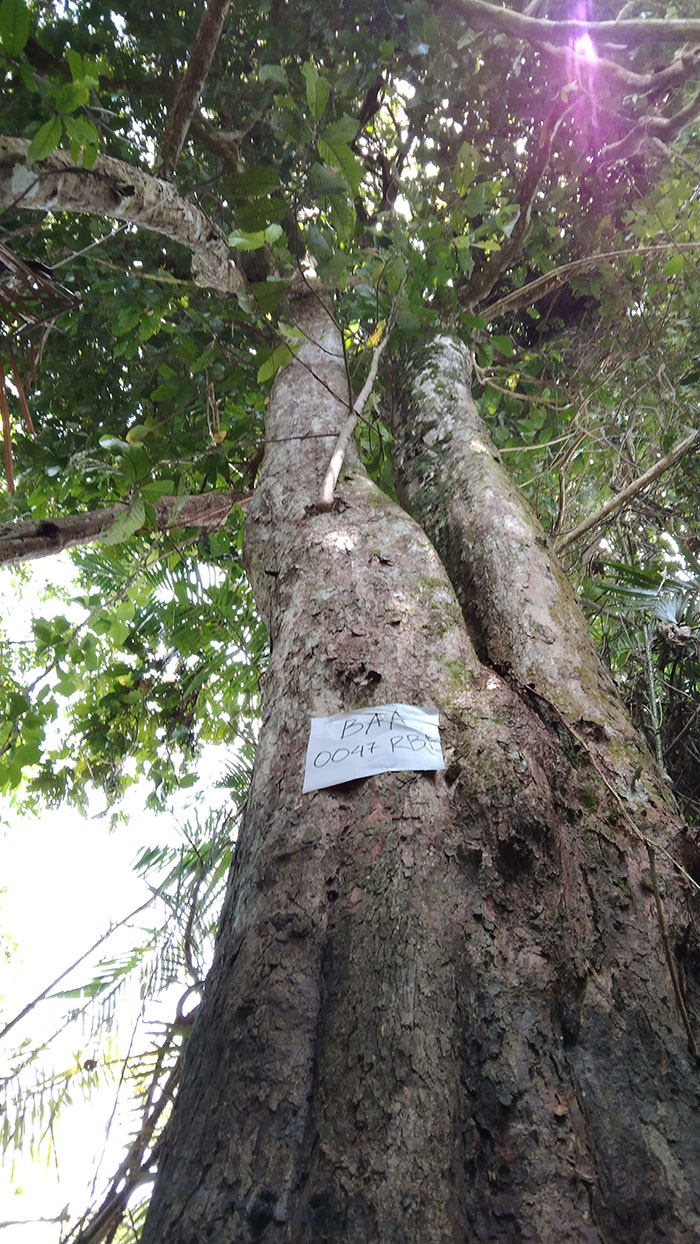 BAA
0047 RBF